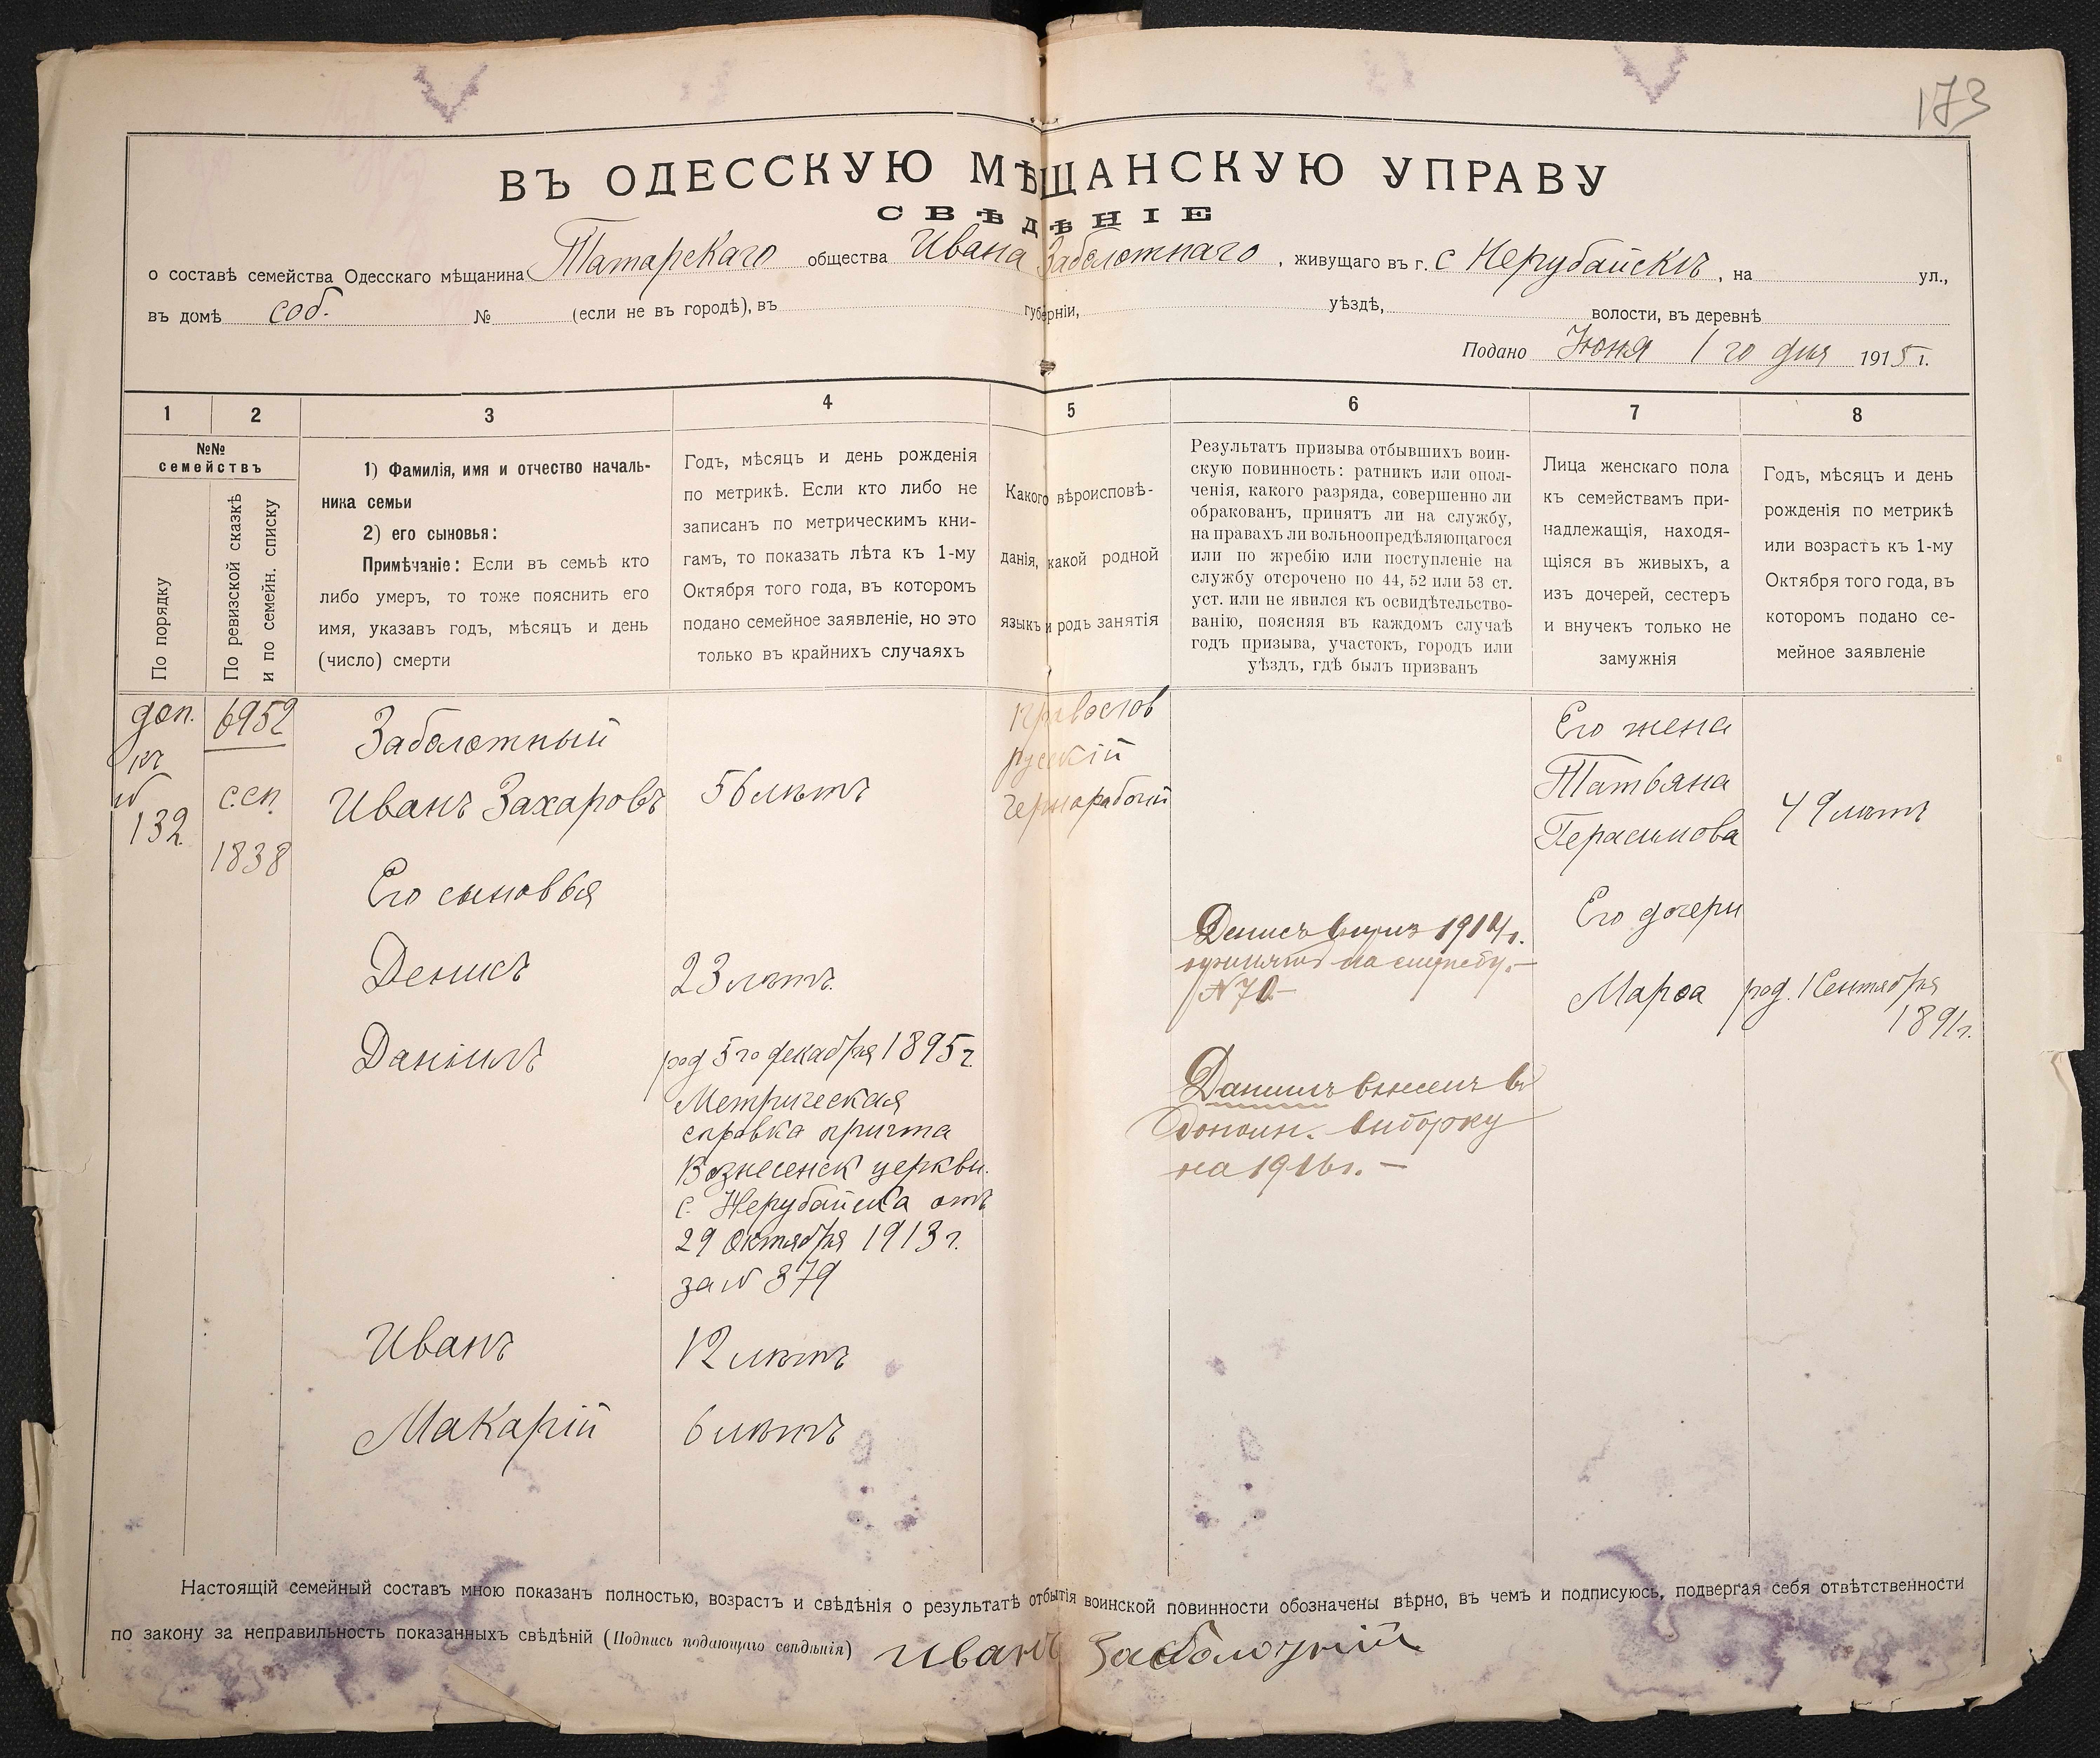 173
ВЪ ОДЕССКУЮ МѢЩАНСКУЮ УПРАВУ
СВѢДѢНІЕ
о составѣ семейства Одесскаго мѣщанина Татарскаго общества Ивана Заболотнаго, живущаго въ г. с Нерубайскѣ, на ул.,
въ домѣ соб. № (если не въ городѣ), въ губерніи, уѣздѣ, волости, въ деревнѣ
Подано Июня 1 го дня 1915 г.
1 2 3 4 5 6 7 8
№№
семействъ
По порядку
По ревизской сказкѣ
и по семейн. списку
1) Фамилія, имя и отчество началь-
ника семьи
2) его сыновья:
Примѣчаніе: Если въ семьѣ кто
либо умеръ, то тоже пояснить его
имя, указавъ годъ, мѣсяцъ и день
(число) смерти
Годъ, мѣсяцъ и день рожденія
по метрикѣ. Если кто либо не
записанъ по метрическимъ кни-
гамъ, то показать лѣта къ 1-му
Октября того года, въ которомъ
подано семейное заявленіе, но это
только въ крайнихъ случаяхъ
Какого вѣроисповѣ-
данія, какой родной
языкъ и родъ занятія
Результатъ призыва отбывшихъ воин-
скую повинность: ратникъ или опол-
ченія, какого разряда, совершенно ли
обракованъ, принятъ ли на службу,
на правахъ ли вольноопредѣляющагося
или по жребію или поступленіе на
службу отсрочено по 44, 52 или 53 ст.
уст. или не явился къ освидѣтельство-
ванію, поясняя въ каждомъ случаѣ
годъ призыва, участокъ, городъ или
уѣздъ, гдѣ былъ призванъ
Лица женскаго пола
къ семействамъ при-
надлежащія, находя-
щіяся въ живыхъ, а
изъ дочерей, сестеръ
и внучекъ только не
замужнія
Годъ, мѣсяцъ и день
рожденія по метрикѣ
или возрастъ къ 1-му
Октября того года, въ
которомъ подано се-
мейное заявленіе
доп.
къ
№
132
6952
с.сп.
1838
Заболотный
Иванъ Захаровъ
56 лѣтъ
Правослов
русскій
Чернорабочій
Его жена
Татьяна
Герасимова
49 лѣтъ
Его сыновья
Его дочери
Денисъ
23 лѣтъ.
Денисъ 1914 г.
принятъ на службу.—
№ 70—
Марѳа
род. 1 Сентября
1891 г.
Даніилъ
род 5 го декабря 1895 г.
Метрическая
справка причта
Вознесенск церкви.
с. Нерубайска отъ
29 Октября 1913 г.
за № 379
Даніилъ внесенъ въ
дополн. выборку
на 1916 г. —
Иванъ
12 лѣтъ
Макарій
6 лѣтъ
Настоящій семейный составъ мною показанъ полностью, возрастъ и свѣдѣнія о результатѣ отбытія воинской повинности обозначены вѣрно, въ чемъ и подписуюсь, подвергая себя отвѣтственности
по закону за неправильность показанныхъ свѣдѣній (Подпись подающаго свѣдѣнія) Иванъ Заболоцкій